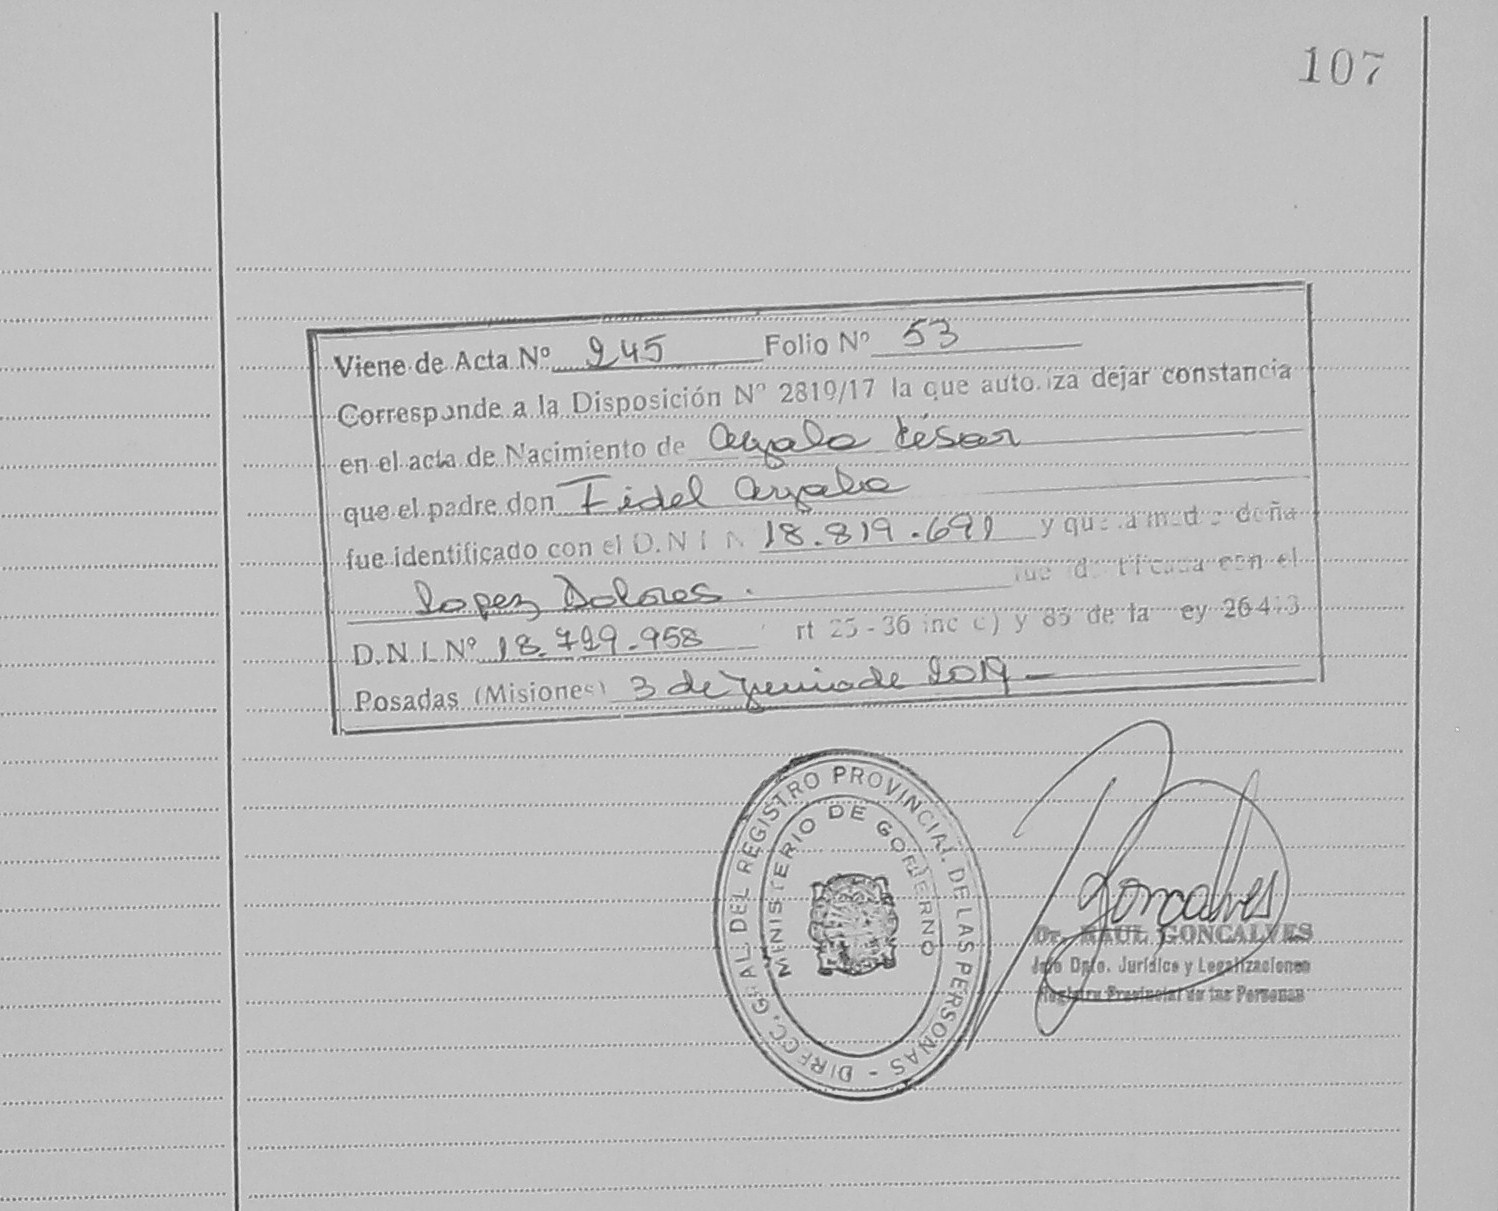 107
Viene de Acta Nº 245 Folio Nº 53
Corresponde a la Disposición Nº 2819/17 la que autoriza dejar constancia
en el acta de Nacimiento de Ayala César
que el padre don Fidel Ayala
fue identificado con el D.N.I. N 18.819.691 y que la madre doña
Lopez Dolores. fue identificada con el
D.N.I. Nº 18.799.958 rt 25-36 inc c) y 85 de la ey 26413
Posadas (Misiones) 3 de junio de 2019
DIRECC. GRAL. DEL REGISTRO PROVINCIAL DE LAS PERSONAS -
MINISTERIO DE GOBIERNO
Goncalves
Dr. RAUL GONCALVES
Jefe Dpto. Jurídico y Legalizaciones
Registro Provincial de las Personas